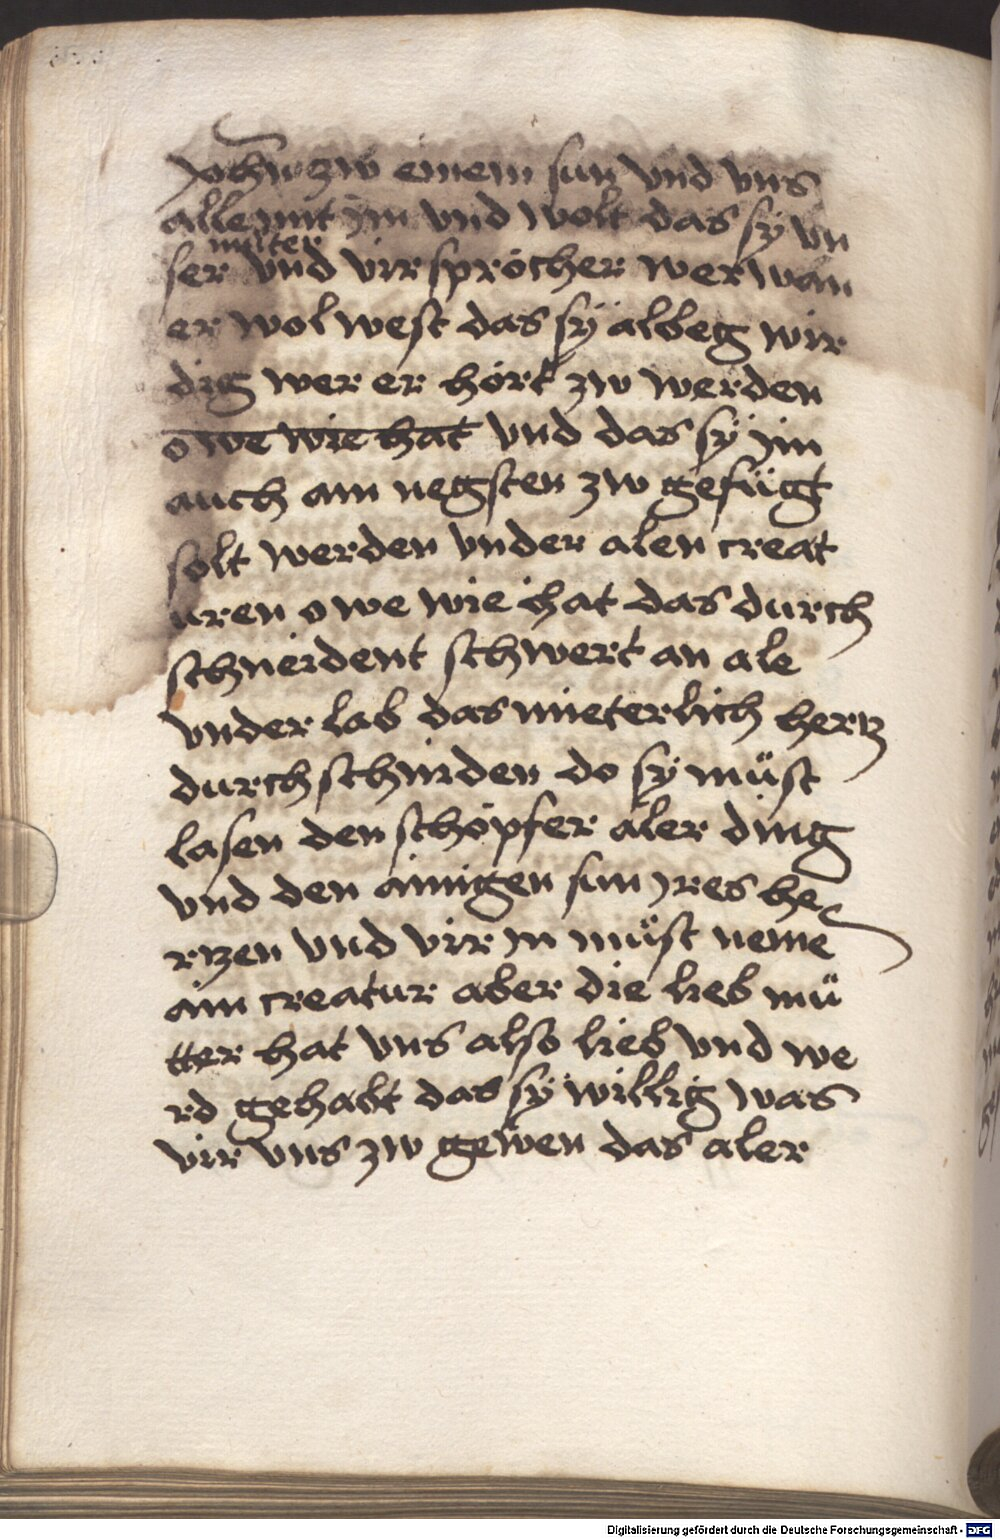 Johns zw einem sun vnd vns
alle mit im vnd wolt das sÿ vn
muter
ser vnd virspröcher wer wan
er wol west das sÿ albeg wir
dig wer er hört zw werden
o we wie hat vnd das sÿ im
auch am negsten zw gefügt
solt werden vnder alen creat
uren o we wie hat das durch
schneident schwert an ale
vnder lab das mieterlich hertz
durch schniden do sÿ müst
lasen den schöpfer aler ding
vnd den ainigen sun ires he
rtzen vnd vir in müst neme
ain creatur aber die lieb mü
tter hat vns also lieb vnd we
rd gehabt das sÿ willig was
vir vns zw gewen das aler
Digitalisierung gefördert durch die Deutsche Forschungsgemeinschaft - DFG